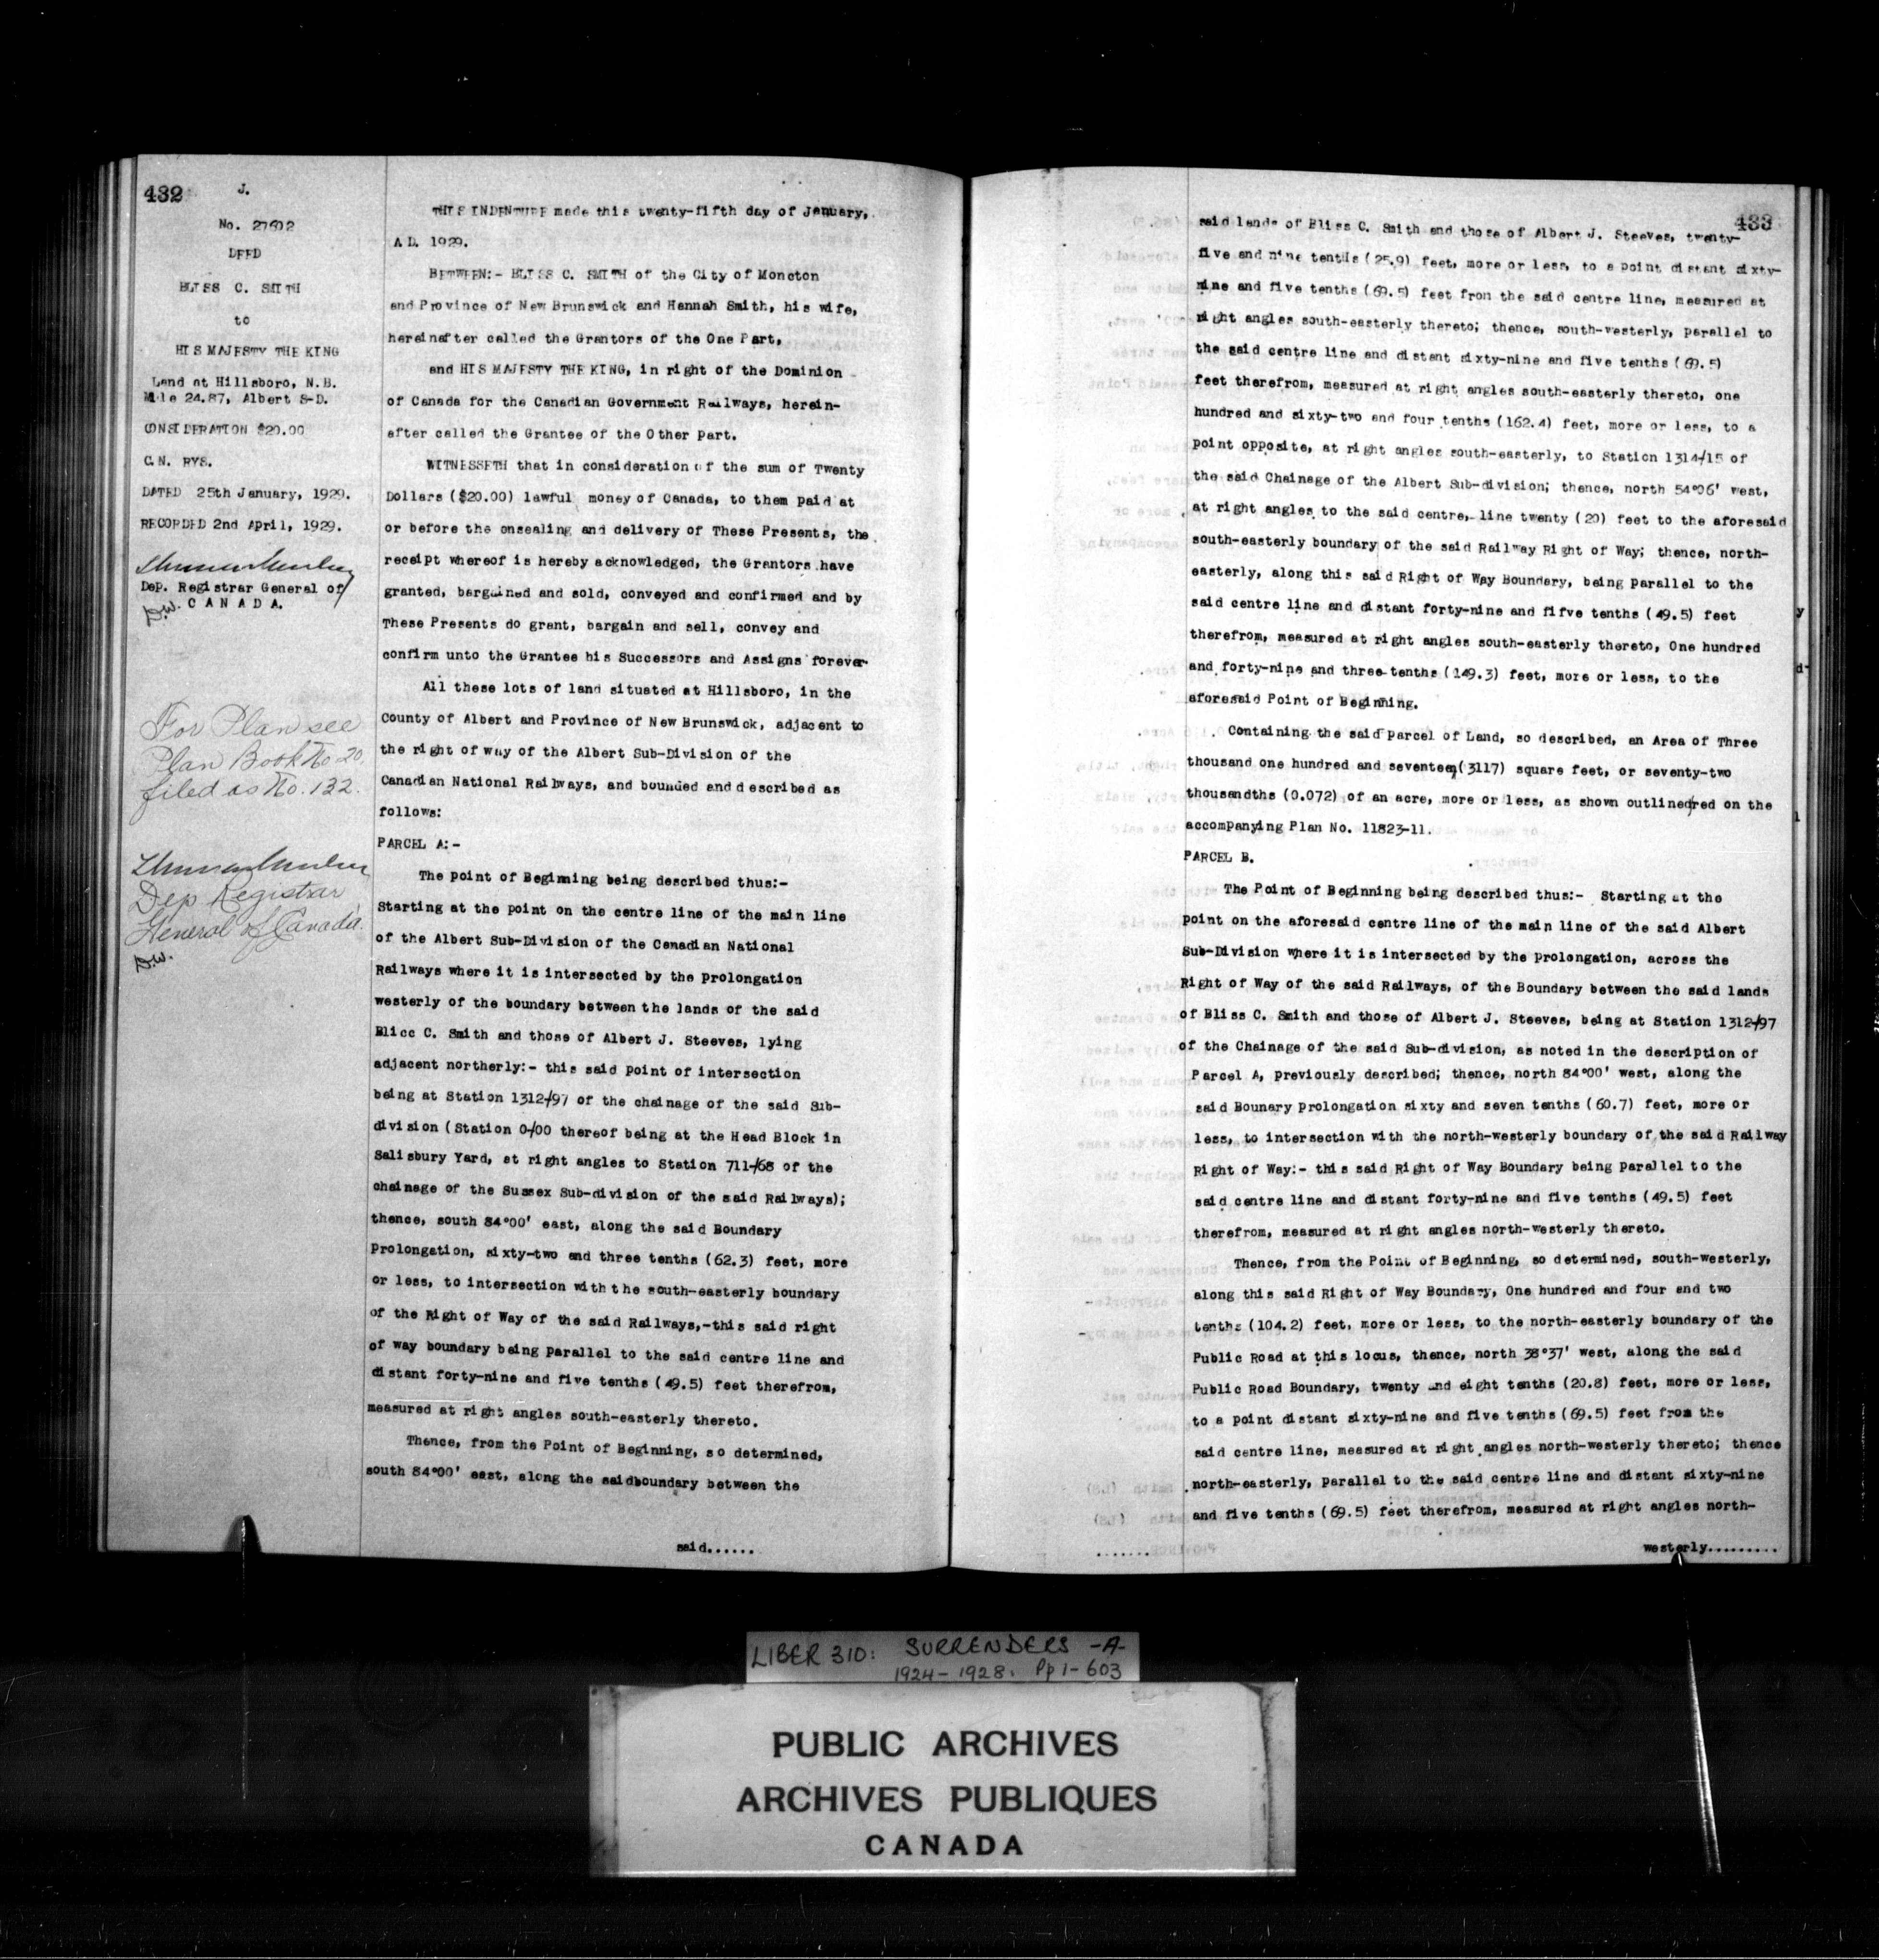 432
J.
No. 27602
DEED
BLISS C. SMITH
to
HIS MAJESTY THE KING
Land at Hillsboro, N.B.
Mile 24.87, Albert S-D.
CONSIDERATION $20.00
C.N. RYS.
DATED 25th January, 1929.
RECORDED 2nd April, 1929.
Dep. Registrar General of
D.W. CANADA.
For Plan see
Plan Book No 20.
filed as No. 132.
Dep Registrar
General of Canada.
D.W.
THIS INDENTURE made this twenty-fifth day of January,
A D. 1929.
BETWEEN:- BLISS C. SMITH of the City of Moncton
and Province of New Brunswick and Hannah Smith, his wife,
hereinafter called the Grantors of the One Part,
and HIS MAJESTY THE KING, in right of the Dominion
of Canada for the Canadian Government Railways, herein-
after called the Grantee of the Other Part.
WITNESSETH that in consideration of the sum of Twenty
Dollars ($20.00) lawful money of Canada, to them paid at
or before the onsealing and delivery of These Presents, the
receipt whereof is hereby acknowledged, the Grantors have
granted, bargained and sold, conveyed and confirmed and by
These Presents do grant, bargain and sell, convey and
confirm unto the Grantee his Successors and Assigns forever
All these lots of land situated at Hillsboro, in the
County of Albert and Province of New Brunswick, adjacent to
the right of way of the Albert Sub-Division of the
Canadian National Railways, and bounded and described as
follows:
PARCEL A:-
The point of Beginning being described thus:-
Starting at the point on the centre line of the main line
of the Albert Sub-Division of the Canadian National
Railways where it is intersected by the prolongation
westerly of the boundary between the lands of the said
Blicc C. Smith and those of Albert J. Steeves, lying
adjacent northerly:- this said point of intersection
being at Station 1312+97 of the chainage of the said Sub-
division (Station 0+00 thereof being at the Head Block in
Salisbury Yard, at right angles to Station 711+68 of the
chainage of the Sussex Sub-division of the said Railways);
thence, south 84°00' east, along the said Boundary
Prolongation, sixty-two and three tenths (62.3) feet, more
or less, to intersection with the south-easterly boundary
of the Right of Way of the said Railways,-this said right
of way boundary being parallel to the said centre line and
distant forty-nine and five tenths (49.5) feet therefrom,
measured at right angles south-easterly thereto.
Thence, from the Point of Beginning, so determined,
south 84°00' east, along the saidboundary between the
said......
433
said lands of Bliss C. Smith and those of Albert J. Steeves, twenty-
five and nine tenths (25.9) feet, more or less, to a point distant sixty-
nine and five tenths (69.5) feet from the said centre line, measured at
right angles south-easterly thereto; thence, south-westerly, parallel to
the said centre line and distant sixty-nine and five tenths (69.5)
feet therefrom, measured at right angles south-easterly thereto, one
hundred and sixty-two and four tenths (162.4) feet, more or less, to a
point opposite, at right angles south-easterly, to Station 1314+15 of
the said Chainage of the Albert Sub-division; thence, north 54°06' west,
at right angles to the said centre line twenty (20) feet to the aforesaid
south-easterly boundary of the said Railway Right of Way; thence, north-
easterly, along this said Right of Way Boundary, being parallel to the
said centre line and distant forty-nine and fifve tenths (49.5) feet
therefrom, measured at right angles south-easterly thereto, One hundred
and forty-nine and three tenths (149.3) feet, more or less, to the
aforesaid Point of Beginning.
Containing the said Parcel of Land, so described, an Area of Three
thousand one hundred and seventeen(3117) square feet, or seventy-two
thousandths (0.072) of an acre, more or less, as shown outlined/red on the
accompanying Plan No. 11823-11.
PARCEL B.
The Point of Beginning being described thus:- Starting at the
point on the aforesaid centre line of the main line of the said Albert
Sub-Division where it is intersected by the prolongation, across the
Right of Way of the said Railways, of the Boundary between the said lands
of Bliss C. Smith and those of Albert J. Steeves, being at Station 1312+97
of the Chainage of the said Sub-division, as noted in the description of
Parcel A, previously described; thence, north 84°00' west, along the
said Bounary prolongation sixty and seven tenths (60.7) feet, more or
less, to intersection with the north-westerly boundary of the said Railway
Right of Way:- this said Right of Way Boundary being parallel to the
said centre line and distant forty-nine and five tenths (49.5) feet
therefrom, measured at right angles north-westerly thereto.
Thence, from the Point of Beginning, so determined, south-westerly,
along this said Right of Way Boundary, One hundred and four and two
tenths (104.2) feet, more or less, to the north-easterly boundary of the
Public Road at this locus, thence, north 38°37' west, along the said
Public Road Boundary, twenty and eight tenths (20.8) feet, more or less,
to a point distant sixty-nine and five tenths (69.5) feet from the
said centre line, measured at right angles north-westerly thereto; thence
north-easterly, parallel to the said centre line and distant sixty-nine
and five tenths (69.5) feet therefrom, measured at right angles north-
westerly.........
LIBER 310: SURRENDERS -A-
1924-1928. Pp 1-603
PUBLIC ARCHIVES
ARCHIVES PUBLIQUES
CANADA